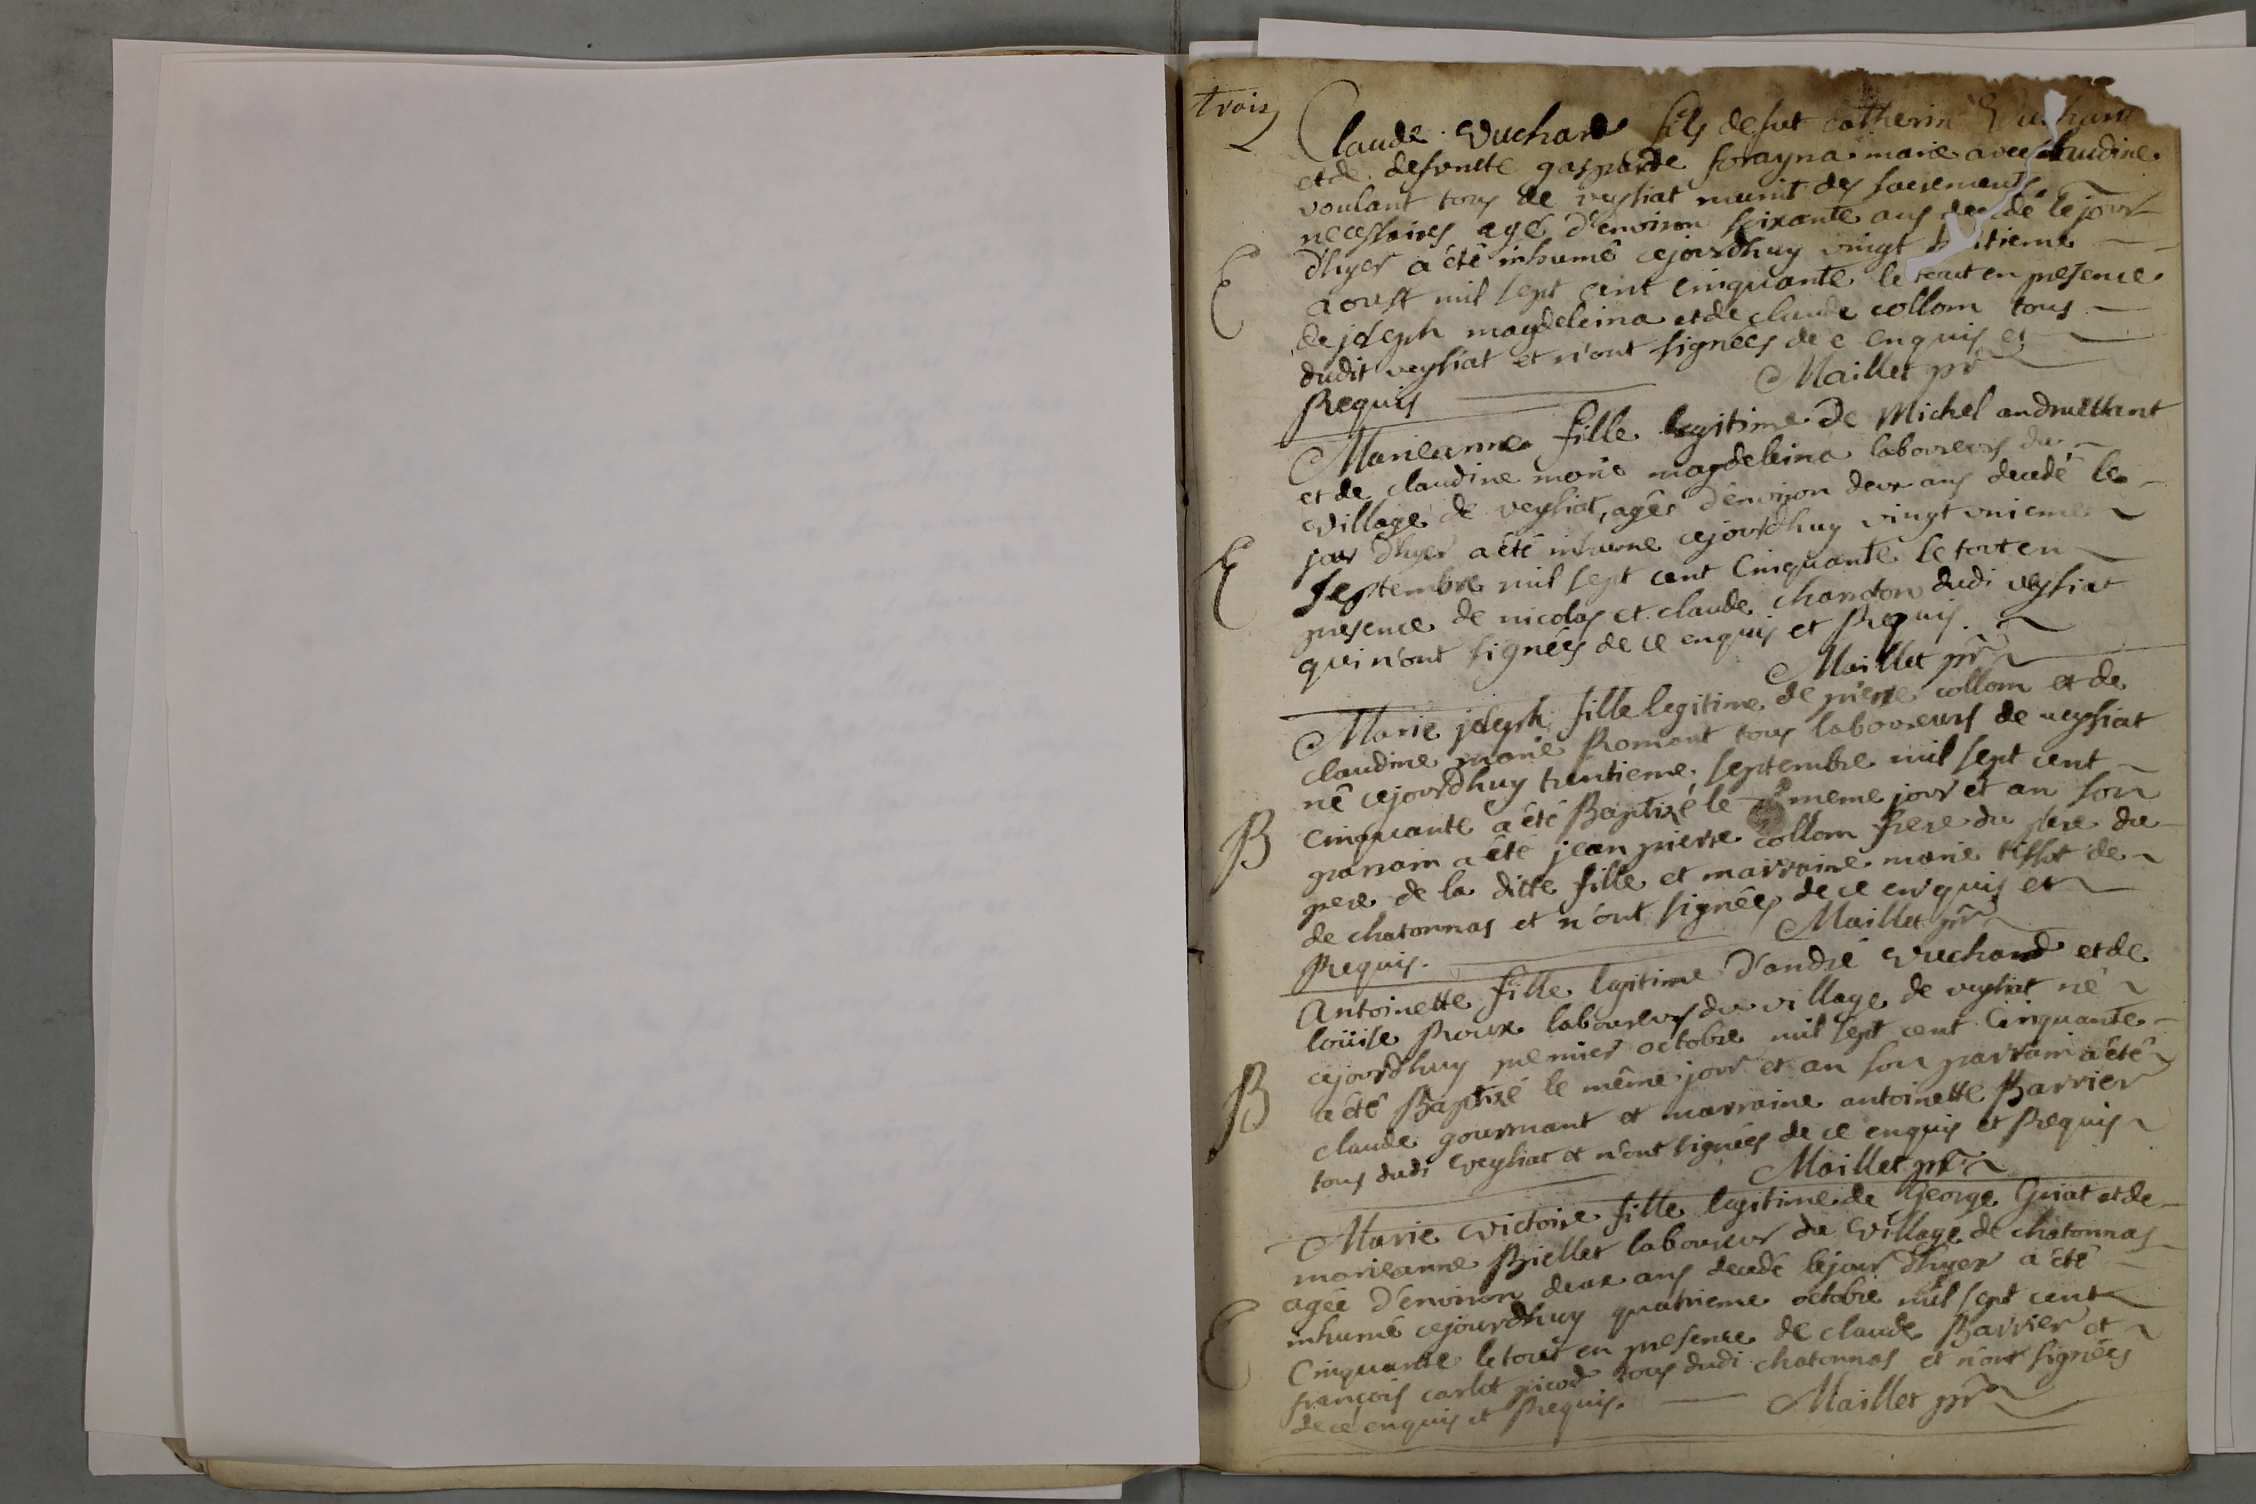 trois
Claude Vuchard fils defut Catherin Vuchard
et de defuncte gasparde forayna marié avec claudine
voulant tous de veysiat munit des sacrements
necessaires agé d'environ soixante ans decedé le jour
E
d'hyer a été inhumé cejourdhuy vingt huitieme
aoust mil sept cent cinquante le tout en presence
de joseph magdeleina et de claude collom tous
dudit veysiat et n'ont signées de ce enquis et
Requis
Maillet ptr
Marieanne fille legitime de Michel andruettant
et de claudine marie magdeleina laboureurs du
village de veysiat, agée d'environ deux ans decedé le
jour d'hyer a été inhumé cejourdhuy vingt unieme
E
septembre mil sept cent Cinquante le tout en
presence de nicolas et claude chardon dudi veysiat
qui n'ont signées de ce enquis et Requis.
Maillet ptr
Marie joseph fille legitime de pierre collom et de
claudine marie Romant tous laboureurs de veysiat
né cejourdhuy trentieme septembre mil sept cent
B
cinquante a été Baptizé le meme jour et an son
parrain a été jean pierre collom frere du pere du
pere de la ditte fille et marraine marie tissot de
de chatonnas et n'ont signées de ce enquis et
Requis.
Maillet ptr
Antoinette fille legitime d'andré Vuchard et de
loüise Roux laboureurs du village de veysiat né
cejourdhuy premier octobre mil sept cent Cinquante
B
a été Baptizé le même jour et an son parrain a été
claude gourmant et marraine antoinette Barrier
tous dudi veysiat et n'ont signées de ce enquis et Requis
Maillet ptr
Marie victoire fille legitime de George Griat et de
marieanne Briellet laboureur du village de chatonnas
agée d'environ deux ans decedé lejour d'hyer a été
E
inhumé cejourdhuy quatrieme octobre mil sept cent
Cinquante le tout en presence de claude Barrier et
françois carlot picod tous dudi chatonnas et n'ont signées
de ce enquis et Requis.
Maillet ptr